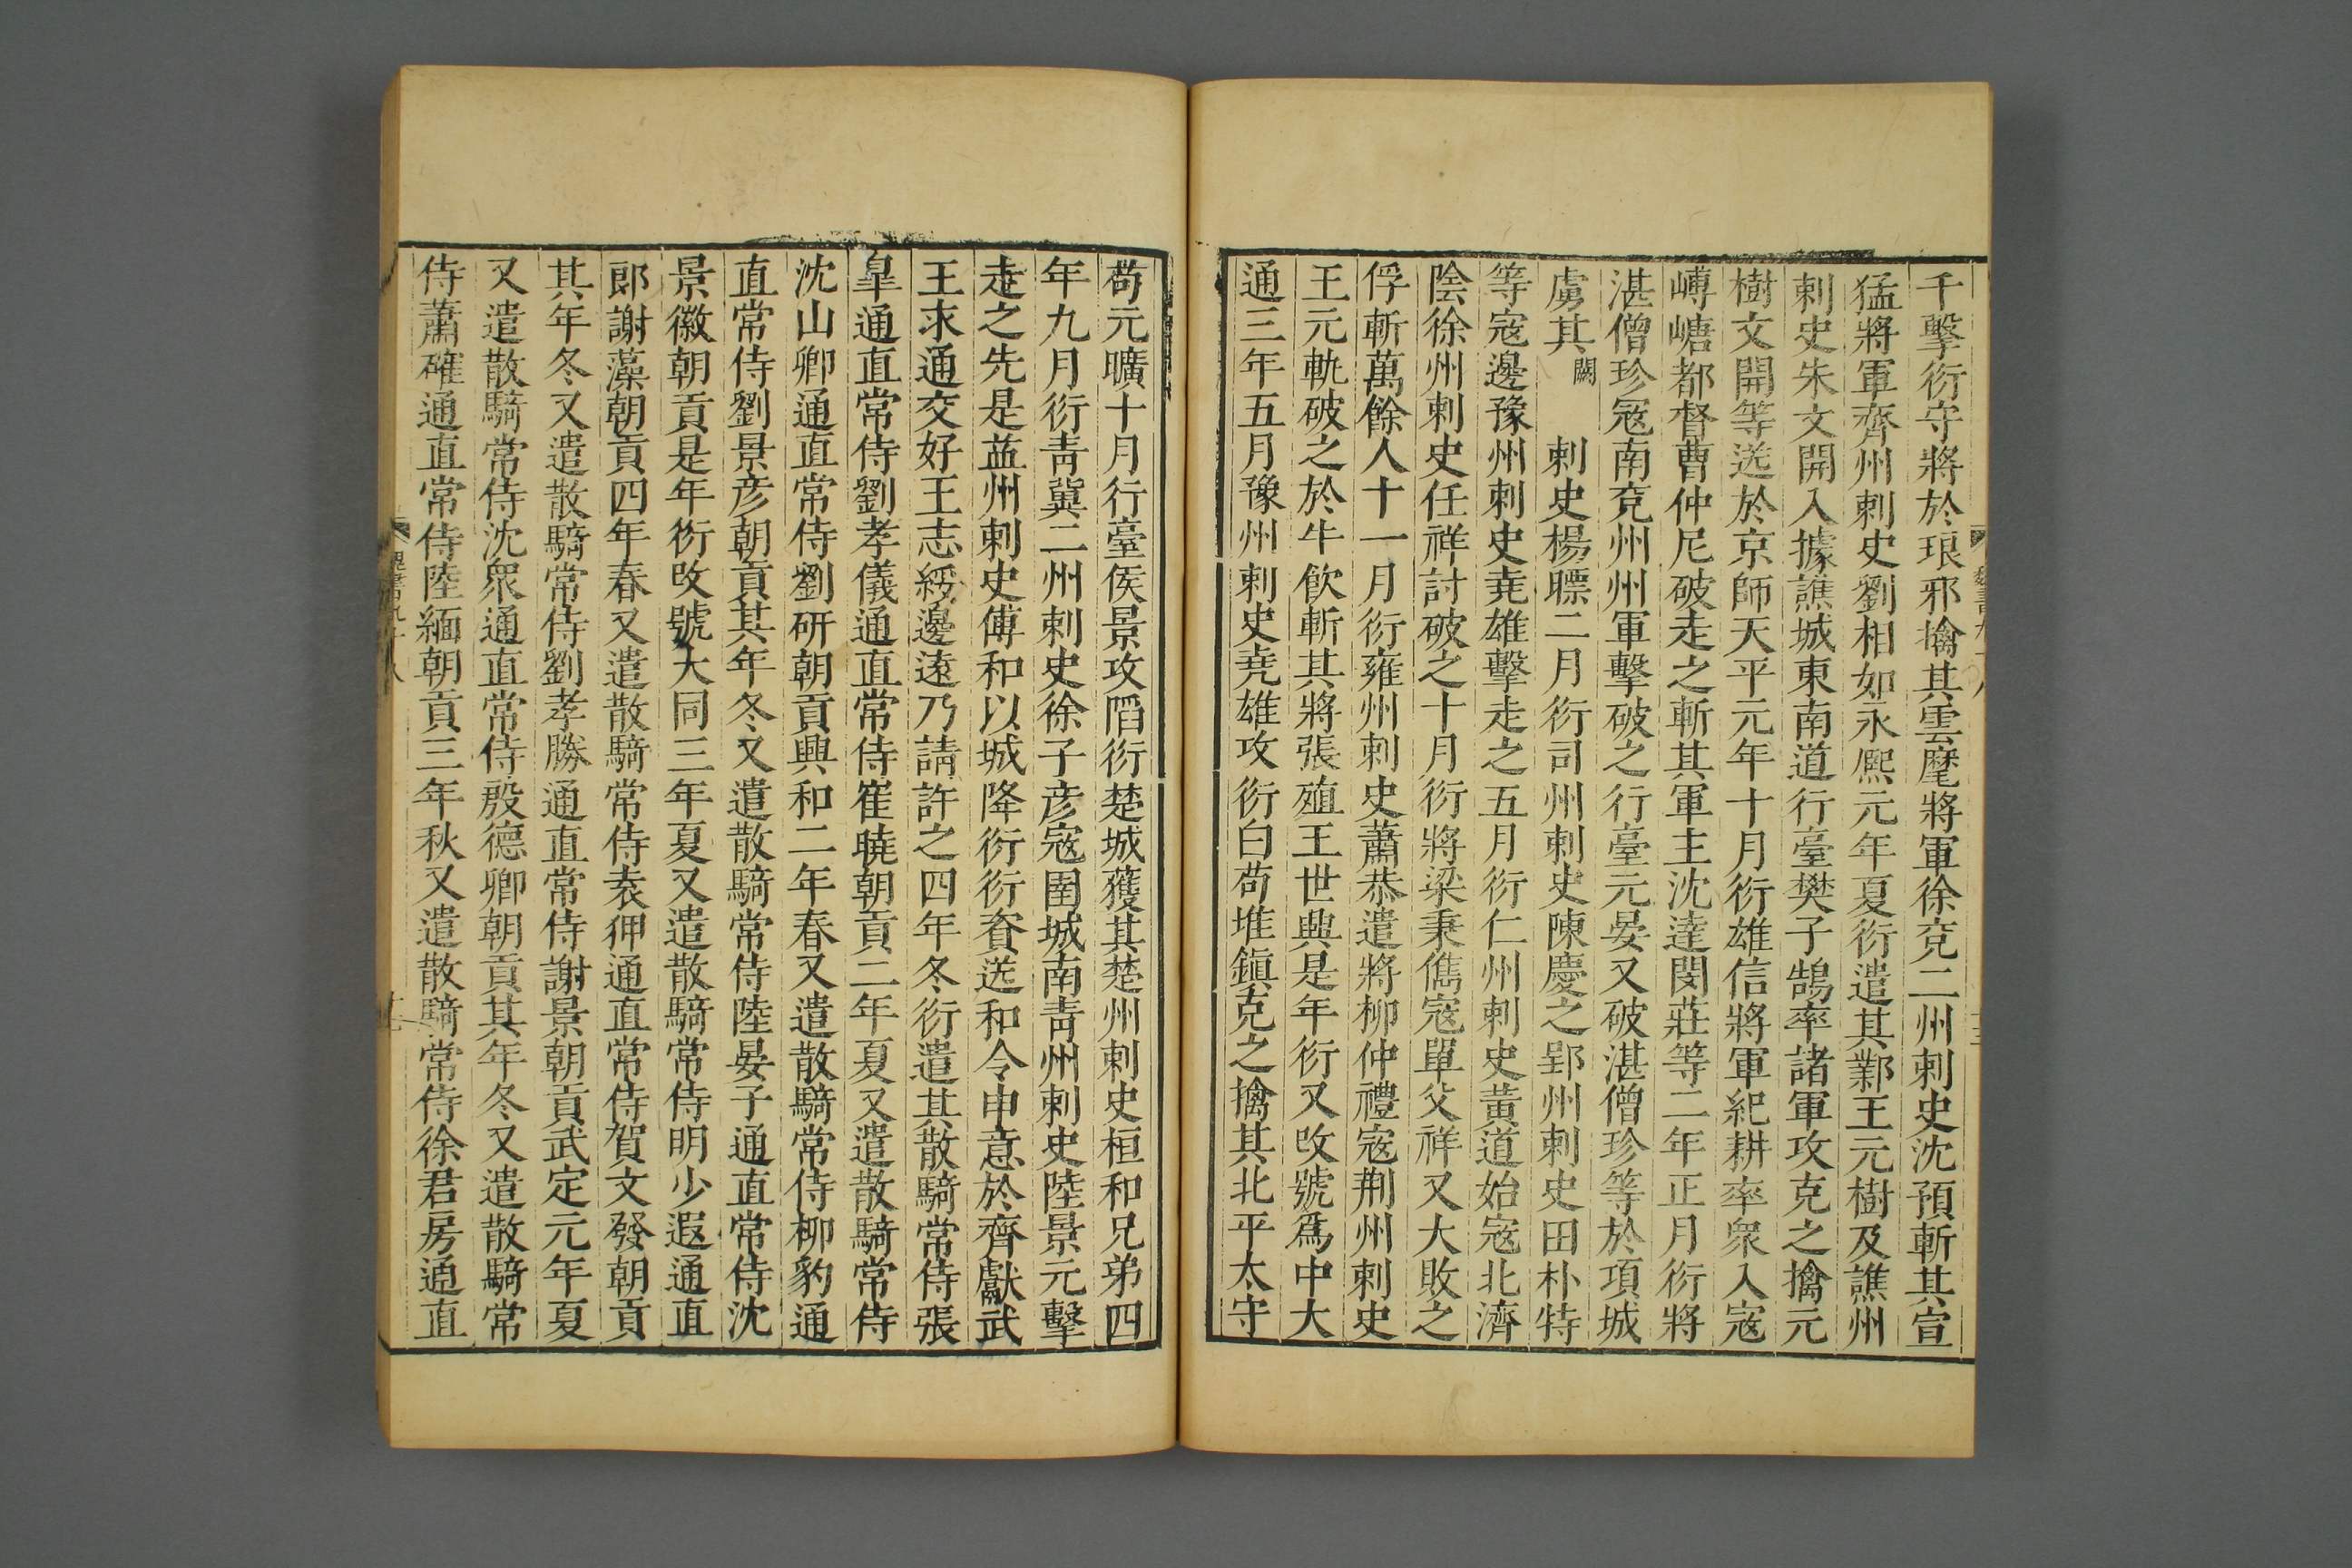 千擊衍守將於琅邪擒其雲麾將軍徐兗二州刺史沈預斬其宣
猛將軍齊州刺史劉相如永熙元年夏衍遣其鄴王元樹及譙州
刺史朱文開入據譙城東南道行臺樊子鵠率諸軍攻克之擒元
樹文開等送於京師天平元年十月衍雄信將軍紀耕率衆入寇
嶀嵣都督曹仲尼破走之斬其軍主沈達閔莊等二年正月衍將
湛僧珍寇南兗州州軍擊破之行臺元晏又破湛僧珍等於項城
虜其闕刺史楊㬓二月衍司州刺史陳慶之郢州刺史田朴特
等寇邊豫州刺史堯雄擊走之五月衍仁州刺史黃道始寇北濟
陰徐州刺史任祥討破之十月衍將梁秉儁寇單父祥又大敗之
俘斬萬餘人十一月衍雍州刺史蕭恭遣將柳仲禮寇荆州刺史
王元軌破之於牛飲斬其將張殖王世興是年衍又攺號爲中大
通三年五月豫州刺史堯雄攻衍白苟堆鎮克之擒其北平太守
苟元曠十月行臺侯景攻䧟衍楚城獲其楚州刺史桓和兄弟四
年九月衍青冀二州刺史徐子彦寇圉城南青州刺史陸景元擊
走之先是益州刺史傅和以城降衍衍資送和令申意於齊獻武
王求通交好王志綏邊遠乃請許之四年冬衍遣其散騎常侍張
臯通直常侍劉孝儀通直常侍崔曉朝貢二年夏又遣散騎常侍
沈山卿通直常侍劉研朝貢興和二年春又遣散騎常侍柳豹通
直常侍劉景彦朝貢其年冬又遣散騎常侍陸晏子通直常侍沈
景徽朝貢是年衍攺號大同三年夏又遣散騎常侍明少遐通直
郎謝藻朝貢四年春又遣散騎常侍袁狎通直常侍賀文發朝貢
其年冬又遣散騎常侍劉孝勝通直常侍謝景朝貢武定元年夏
又遣散騎常侍沈衆通直常侍殷德卿朝貢其年冬又遣散騎常
侍蕭確通直常侍陸緬朝貢三年秋又遣散騎常侍徐君房通直